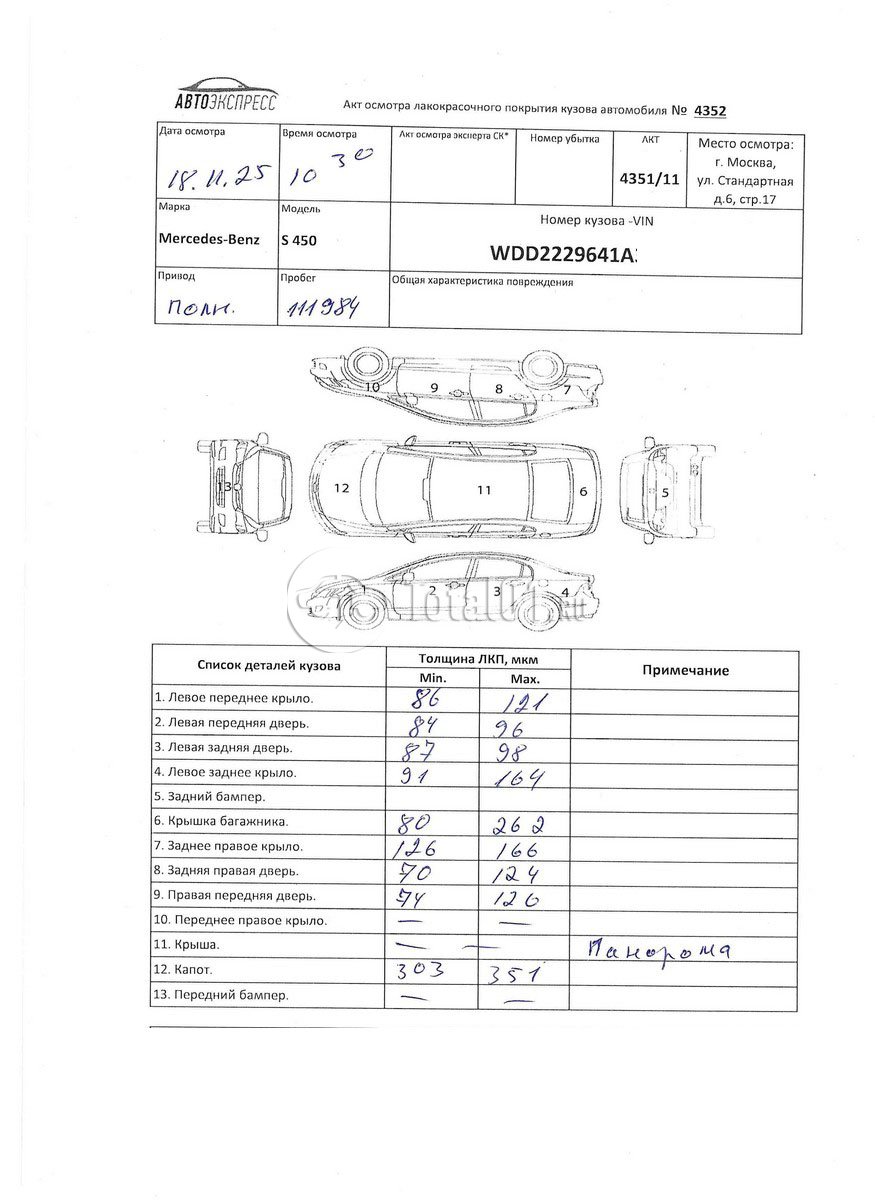 АВТОЭКСПРЕСС
Акт осмотра лакокрасочного покрытия кузова автомобиля № 4352
Дата осмотра Время осмотра Акт осмотра эксперта СК* Номер убытка АКТ Место осмотра:
г. Москва,
18.11.25 10 30 4351/11 ул. Стандартная
д.6, стр.17
Марка Модель Номер кузова -VIN
Mercedes-Benz S 450 WDD2229641A
Привод Пробег Общая характеристика повреждения
Полн. 111984
10 9 8 7
13 12 11 6 5
1 2 3 4
Список деталей кузова Толщина ЛКП, мкм Примечание
Min. Max.
1. Левое переднее крыло. 86 121
2. Левая передняя дверь. 84 96
3. Левая задняя дверь. 87 98
4. Левое заднее крыло. 91 164
5. Задний бампер.
6. Крышка багажника. 80 262
7. Заднее правое крыло. 126 166
8. Задняя правая дверь. 70 124
9. Правая передняя дверь. 74 126
10. Переднее правое крыло. — —
11. Крыша. — — Панорома
12. Капот. 303 351
13. Передний бампер. — —